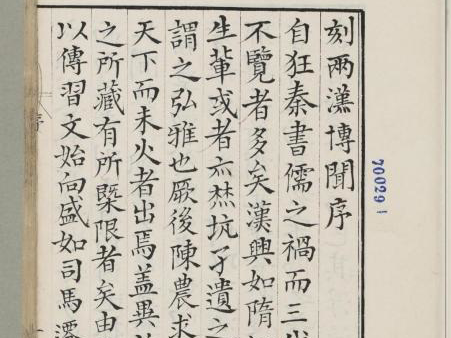 刻兩漢博聞序
自狂秦書儒之禍而三
不覽者多矣漢興如隋
生軰或者亦焚坑孑遺之
謂之弘雅也厥後陳農求
天下而未火者出焉盖異
之所藏有所槩限者矣由
以傳習文始向盛如司馬遷
700291